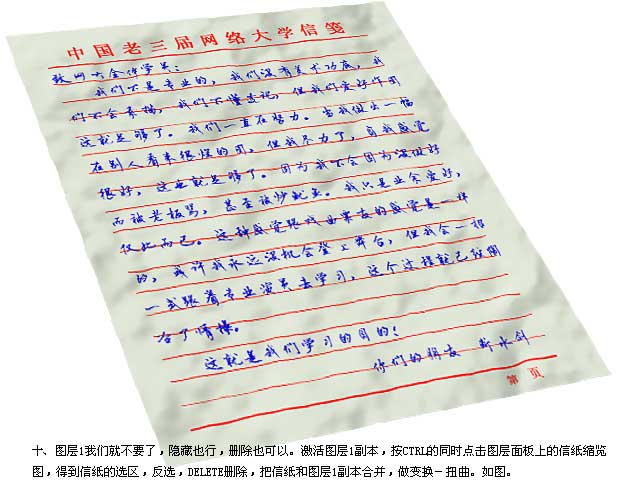 中国老三届网络大学信笺
致网大全体学员：
我们不是专业的，我们没有美术功底，我
们不会素描，我们不懂速记，但我们爱好作图
这就足够了。我们一直在努力。当我做出一幅
在别人看来很怪的图，但我尽力了，自我感觉
很好，这也就足够了。因为我不会因为没做好
而被老板骂，甚至被炒鱿鱼。我只是业余爱好，
仅此而已。这种感觉跟戏曲票友的感觉是一样
的，或许我永远没机会登上舞台，但我会一招
一式跟着专业演员去学习，这个过程就已经圆
合了情操。
这就是我们学习的目的！
你们的朋友 新水剑
第 页
十、图层1我们就不要了，隐藏也行，删除也可以。激活图层1副本，按CTRL的同时点击图层面板上的信纸缩览
图，得到信纸的选区，反选，DELETE删除，把信纸和图层1副本合并，做变换－扭曲。如图。